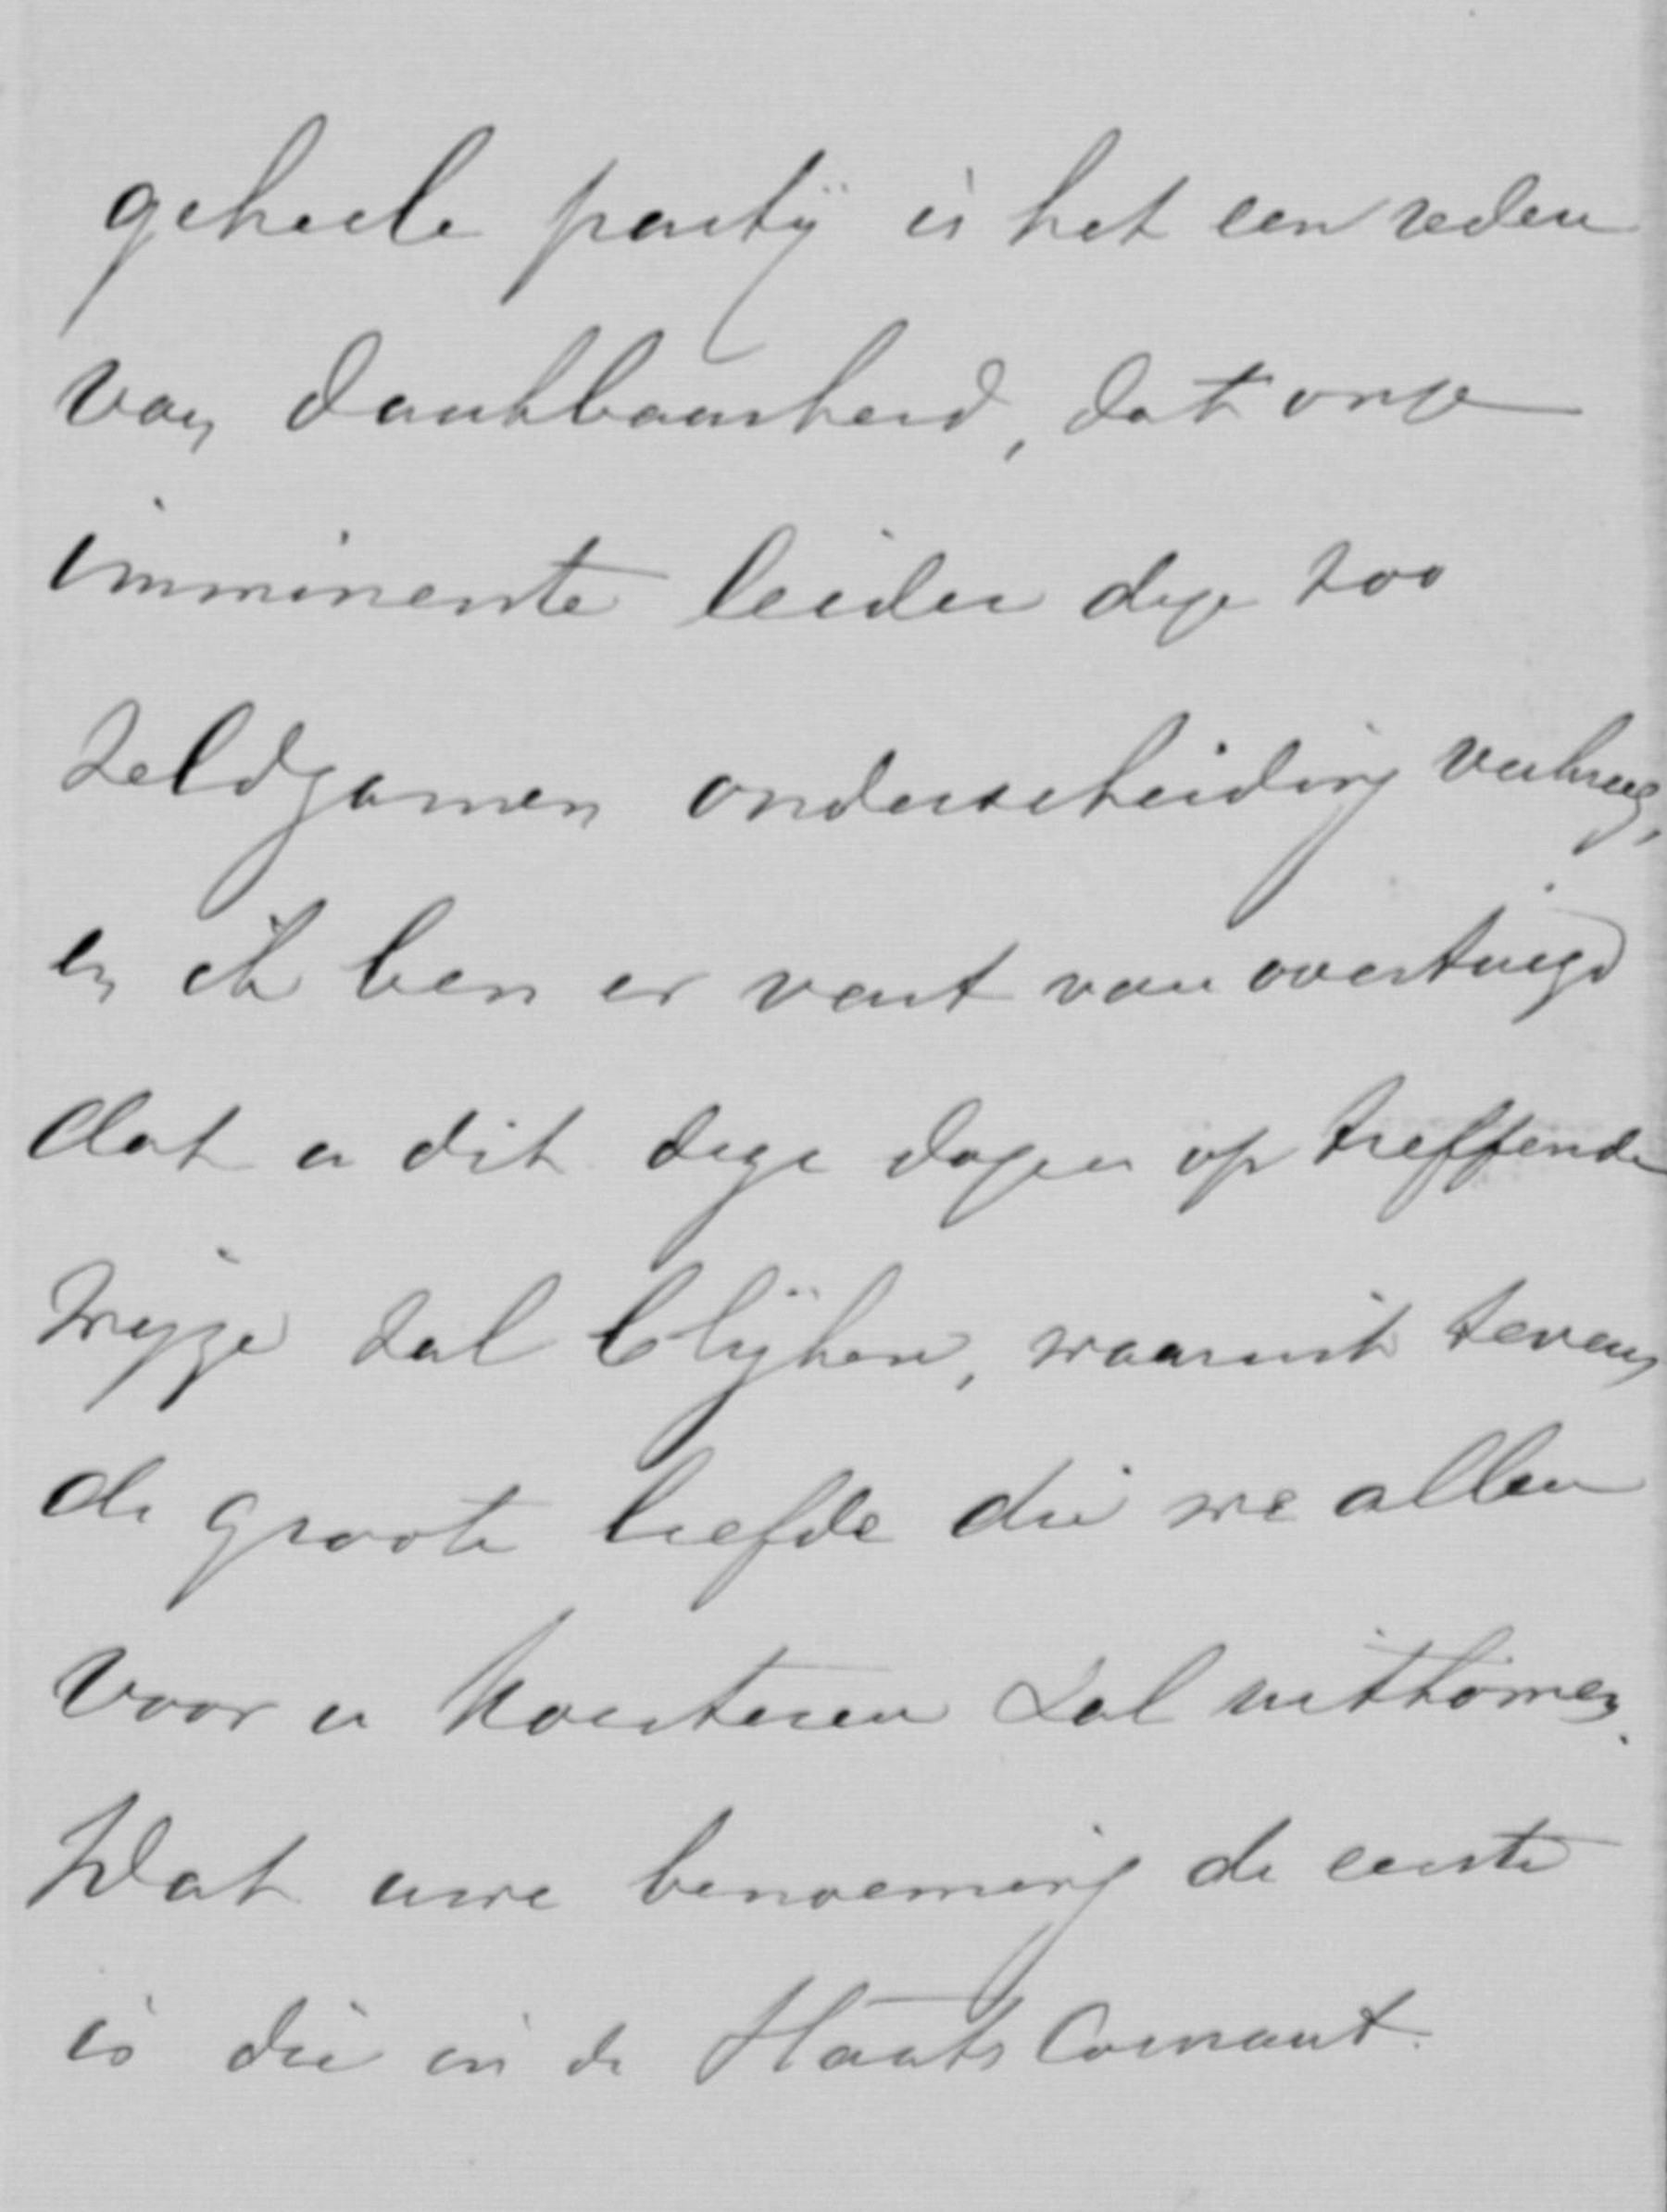 geheele partij is het een reden
van dankbaarheid, dat onze
imminente leider deze zoo
zeldzamen onderscheiding verkreeg,
en ik ben er vast van overtuigd
dat u dit deze dagen op treffende
wijze zal blijken, waaruit tevens
de groote liefde die we allen
voor u koesteren zal uitkomen.
Dat uwe benoeming de eerste
is die in de Staats Courant